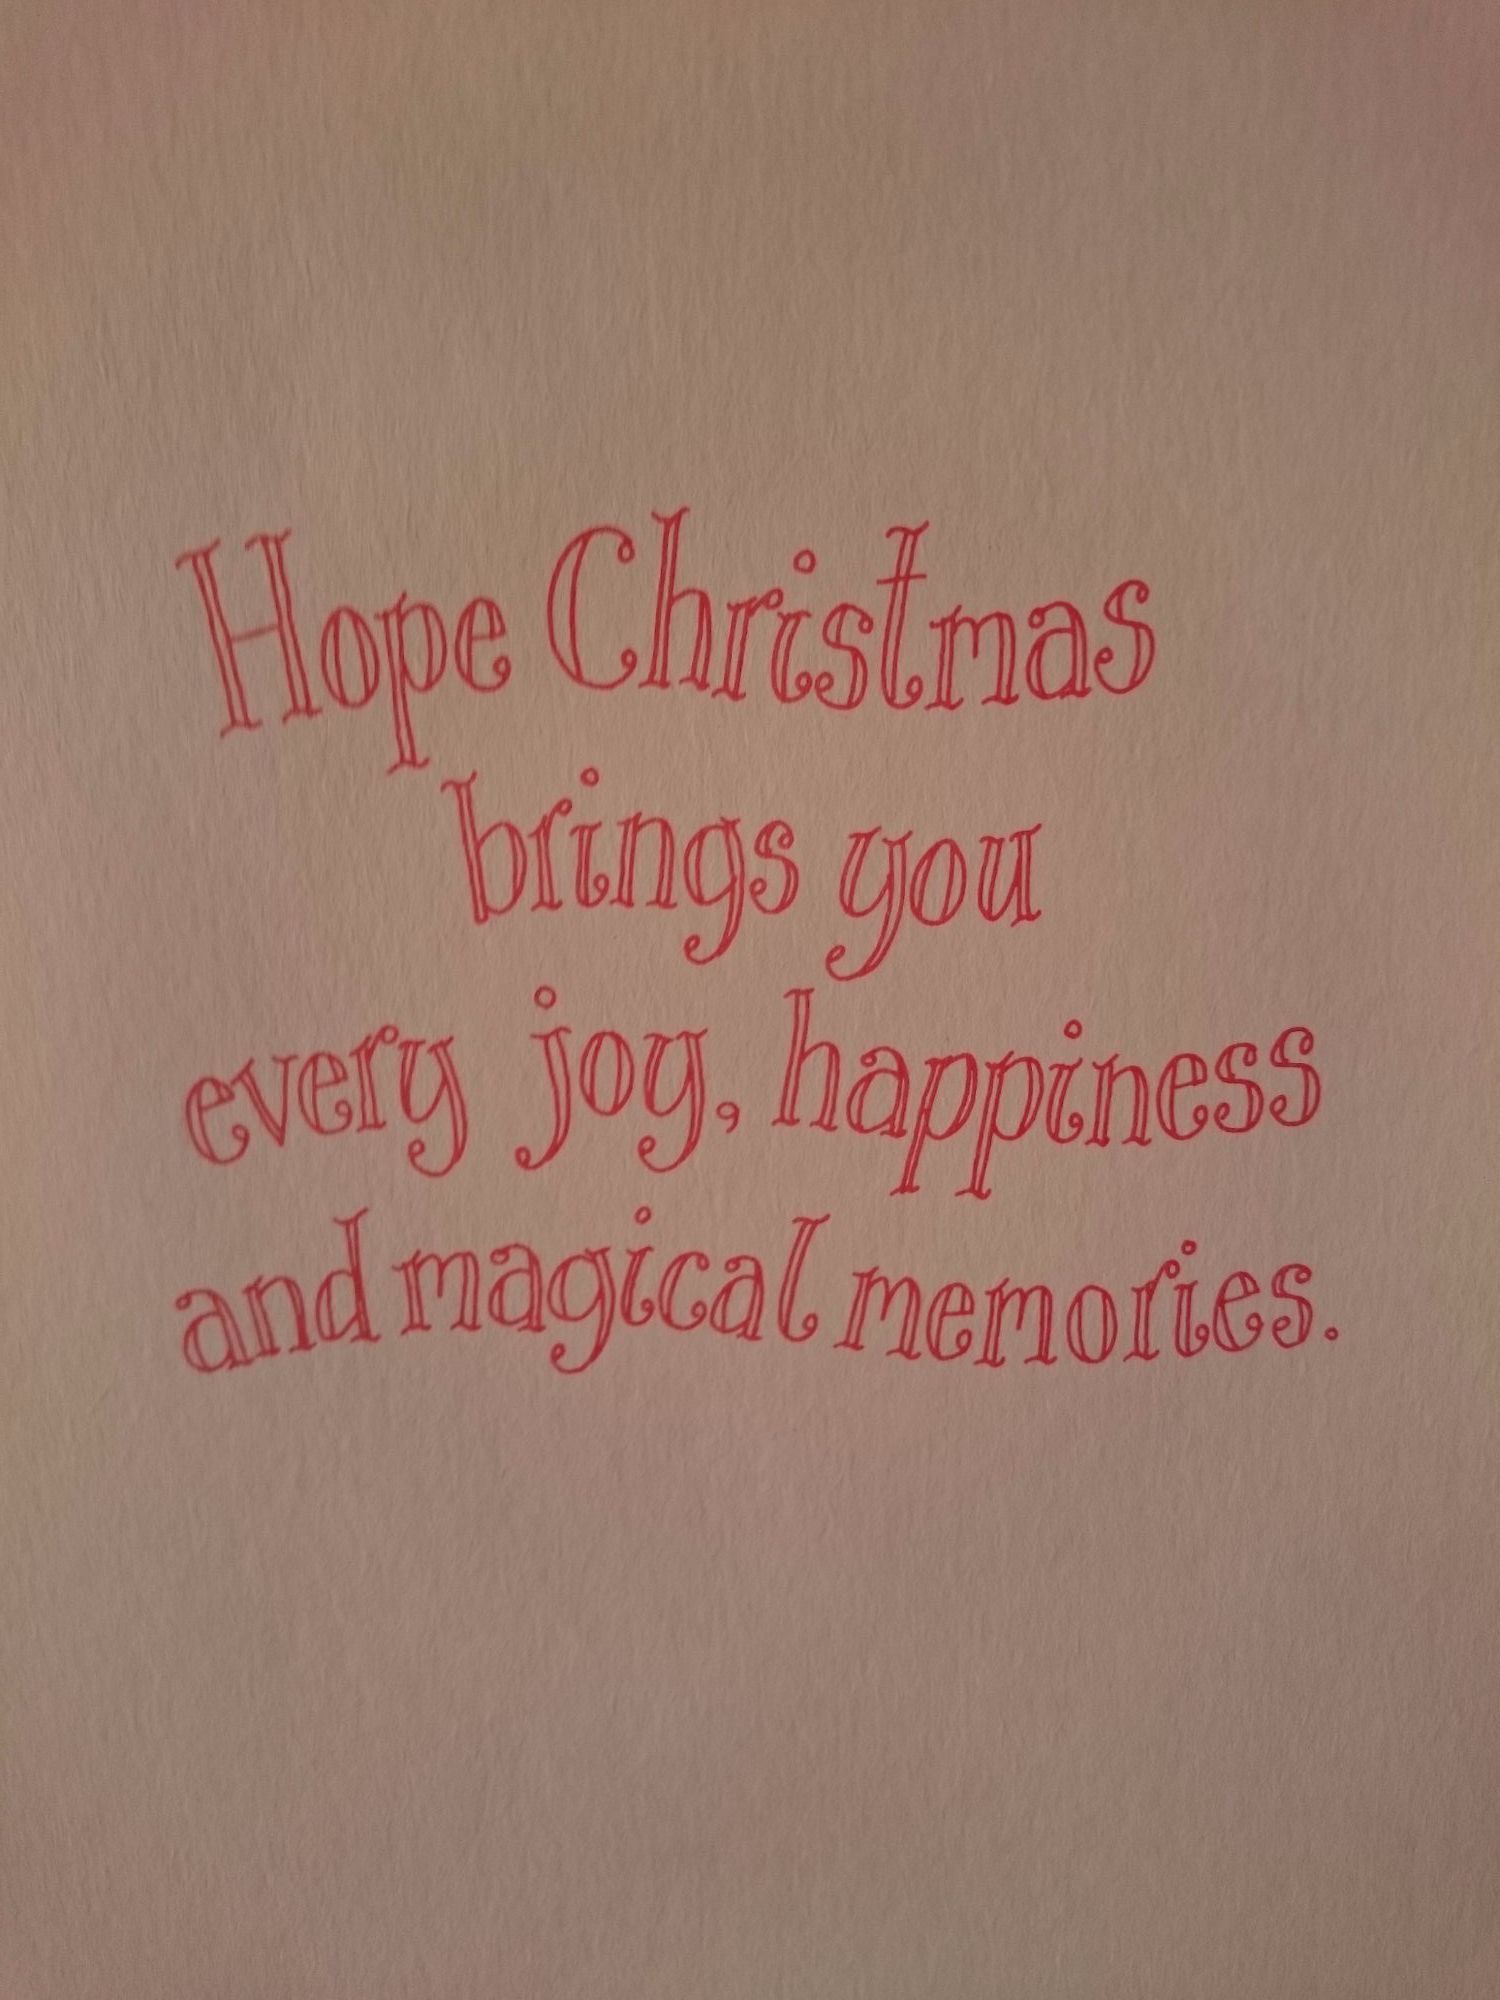 Hope Christmas
brings you
every joy, happiness
and magical memories.